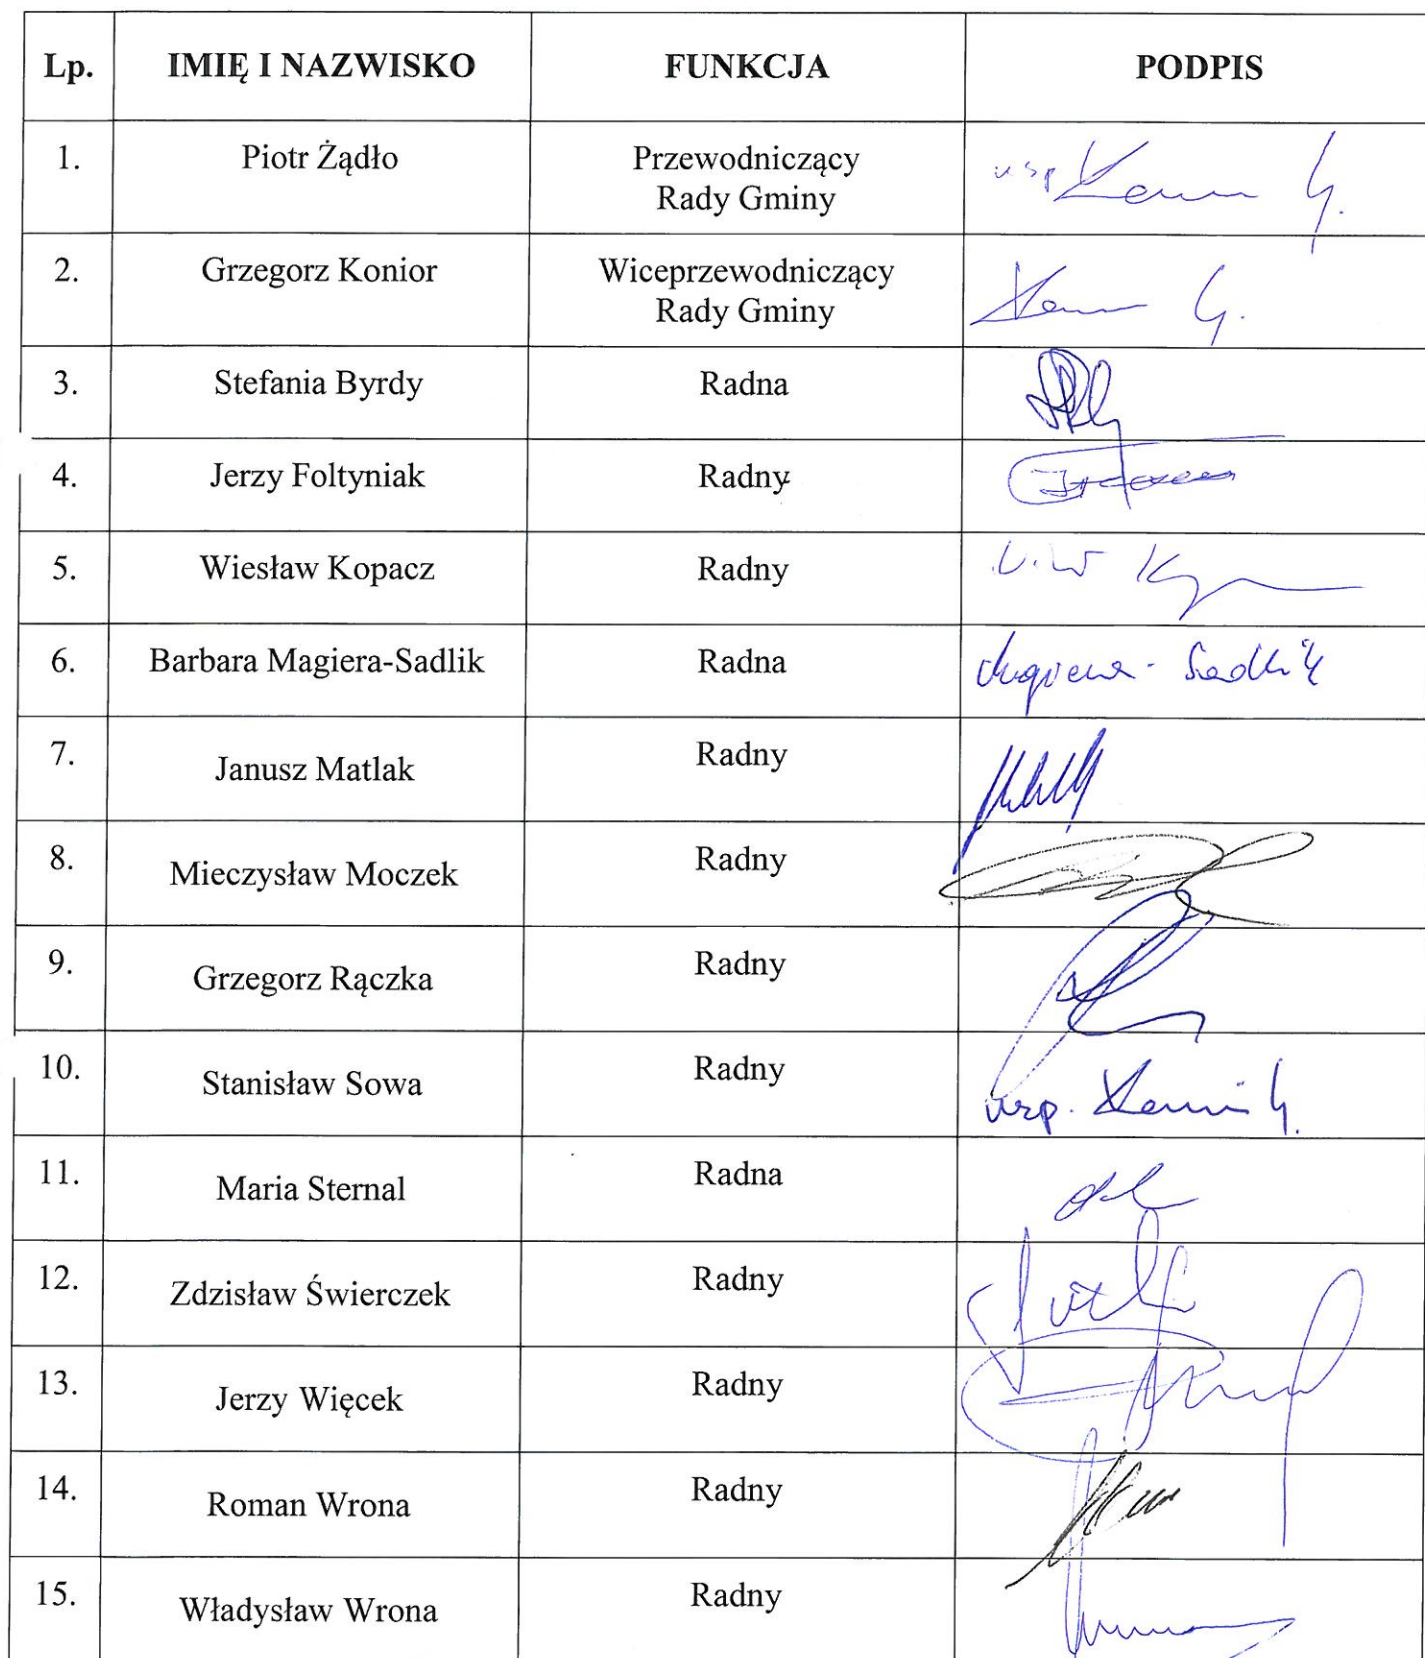 Lp. IMIĘ I NAZWISKO FUNKCJA PODPIS
1. Piotr Żądło Przewodniczący
Rady Gminy
2. Grzegorz Konior Wiceprzewodniczący
Rady Gminy
3. Stefania Byrdy Radna
4. Jerzy Foltyniak Radny
5. Wiesław Kopacz Radny
6. Barbara Magiera-Sadlik Radna Magiera-Sadlik
7. Janusz Matlak Radny
8. Mieczysław Moczek Radny
9. Grzegorz Rączka Radny
10. Stanisław Sowa Radny usp.
11. Maria Sternal Radna
12. Zdzisław Świerczek Radny
13. Jerzy Więcek Radny
14. Roman Wrona Radny
15. Władysław Wrona Radny